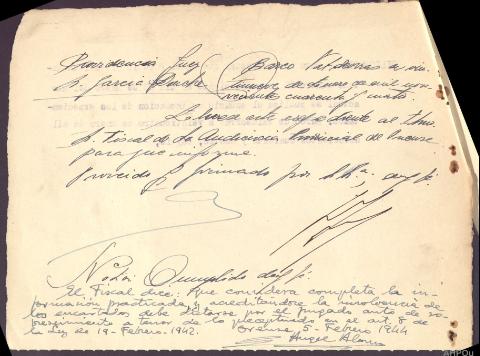 Providencia Juez
Sr. García
Barco Valdeorras a
de enero de mil nov
cientos cuarenta y cuatro
Elévese este expediente al Ilmo
Sr. Fiscal de La Audiencia Provincial de Orense
para que informe.
Proveido y firmado por S.Sª. doy fe.
Nota: Cumplido doy fe.
El Fiscal dice: Que considera completa la in-
formación practicada y acreditándose la insolvencia de
los encartados debe dictarse por el Juzgado auto de so-
breseimiento a tenor de lo preceptuado en el art. 8 de
la Ley de 19-Febrero-1942.
Orense, 5-Febrero 1944
Angel Alonso
AHPOu